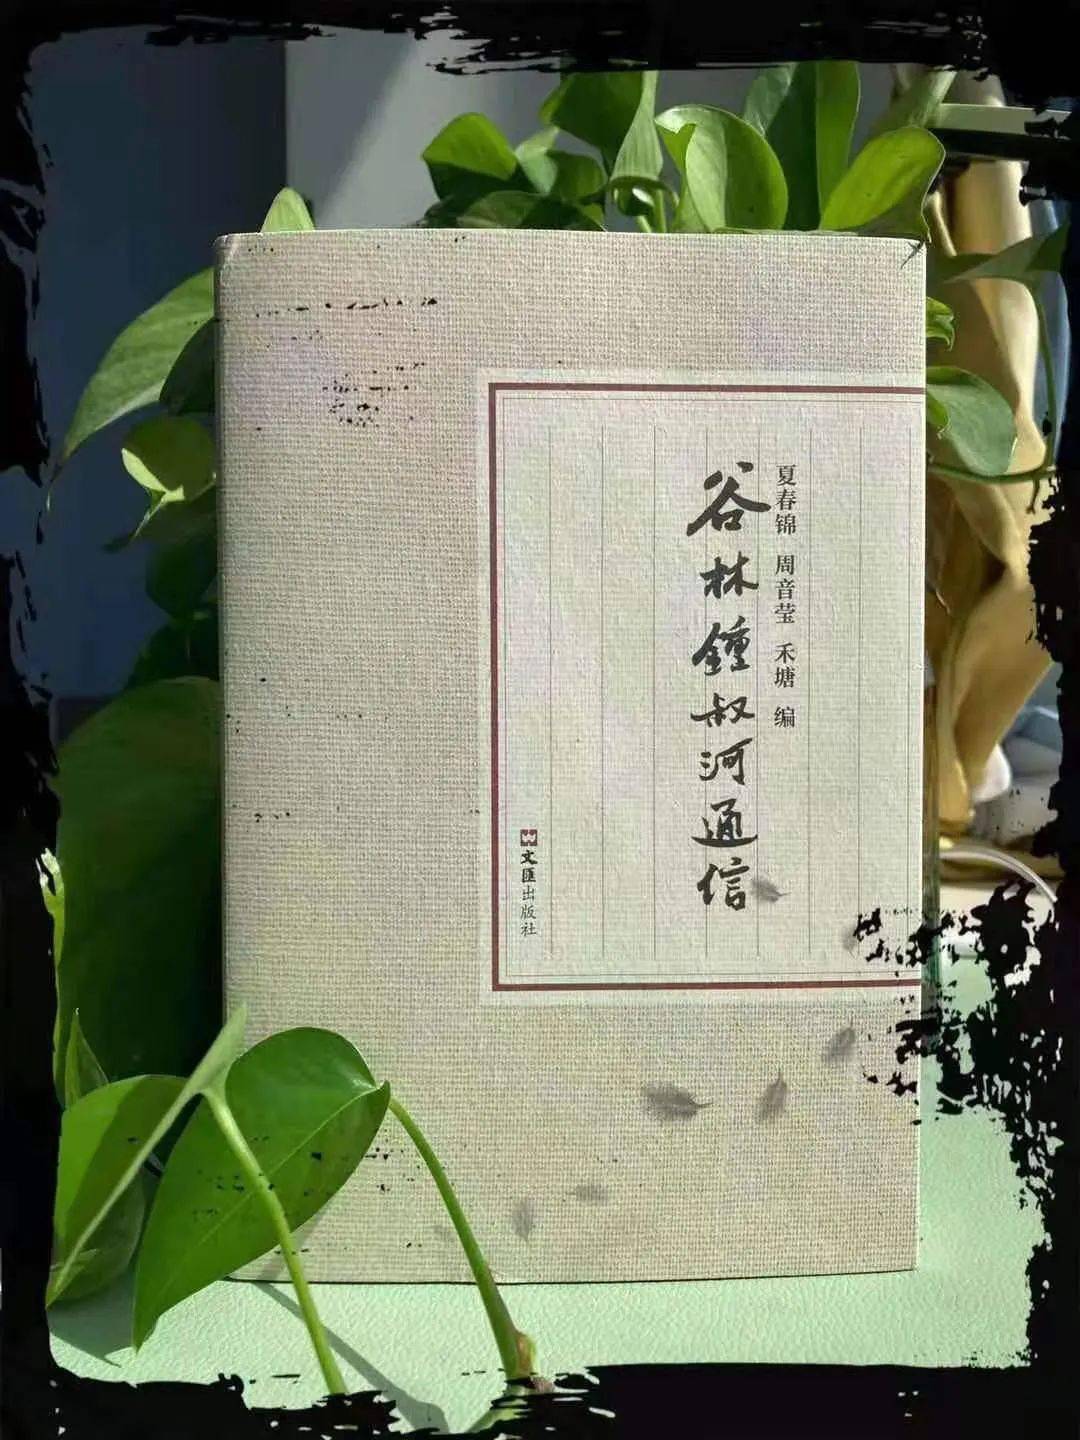 夏春锦 周音莹 禾塘 编
谷林鍾叔河通信
文匯出版社